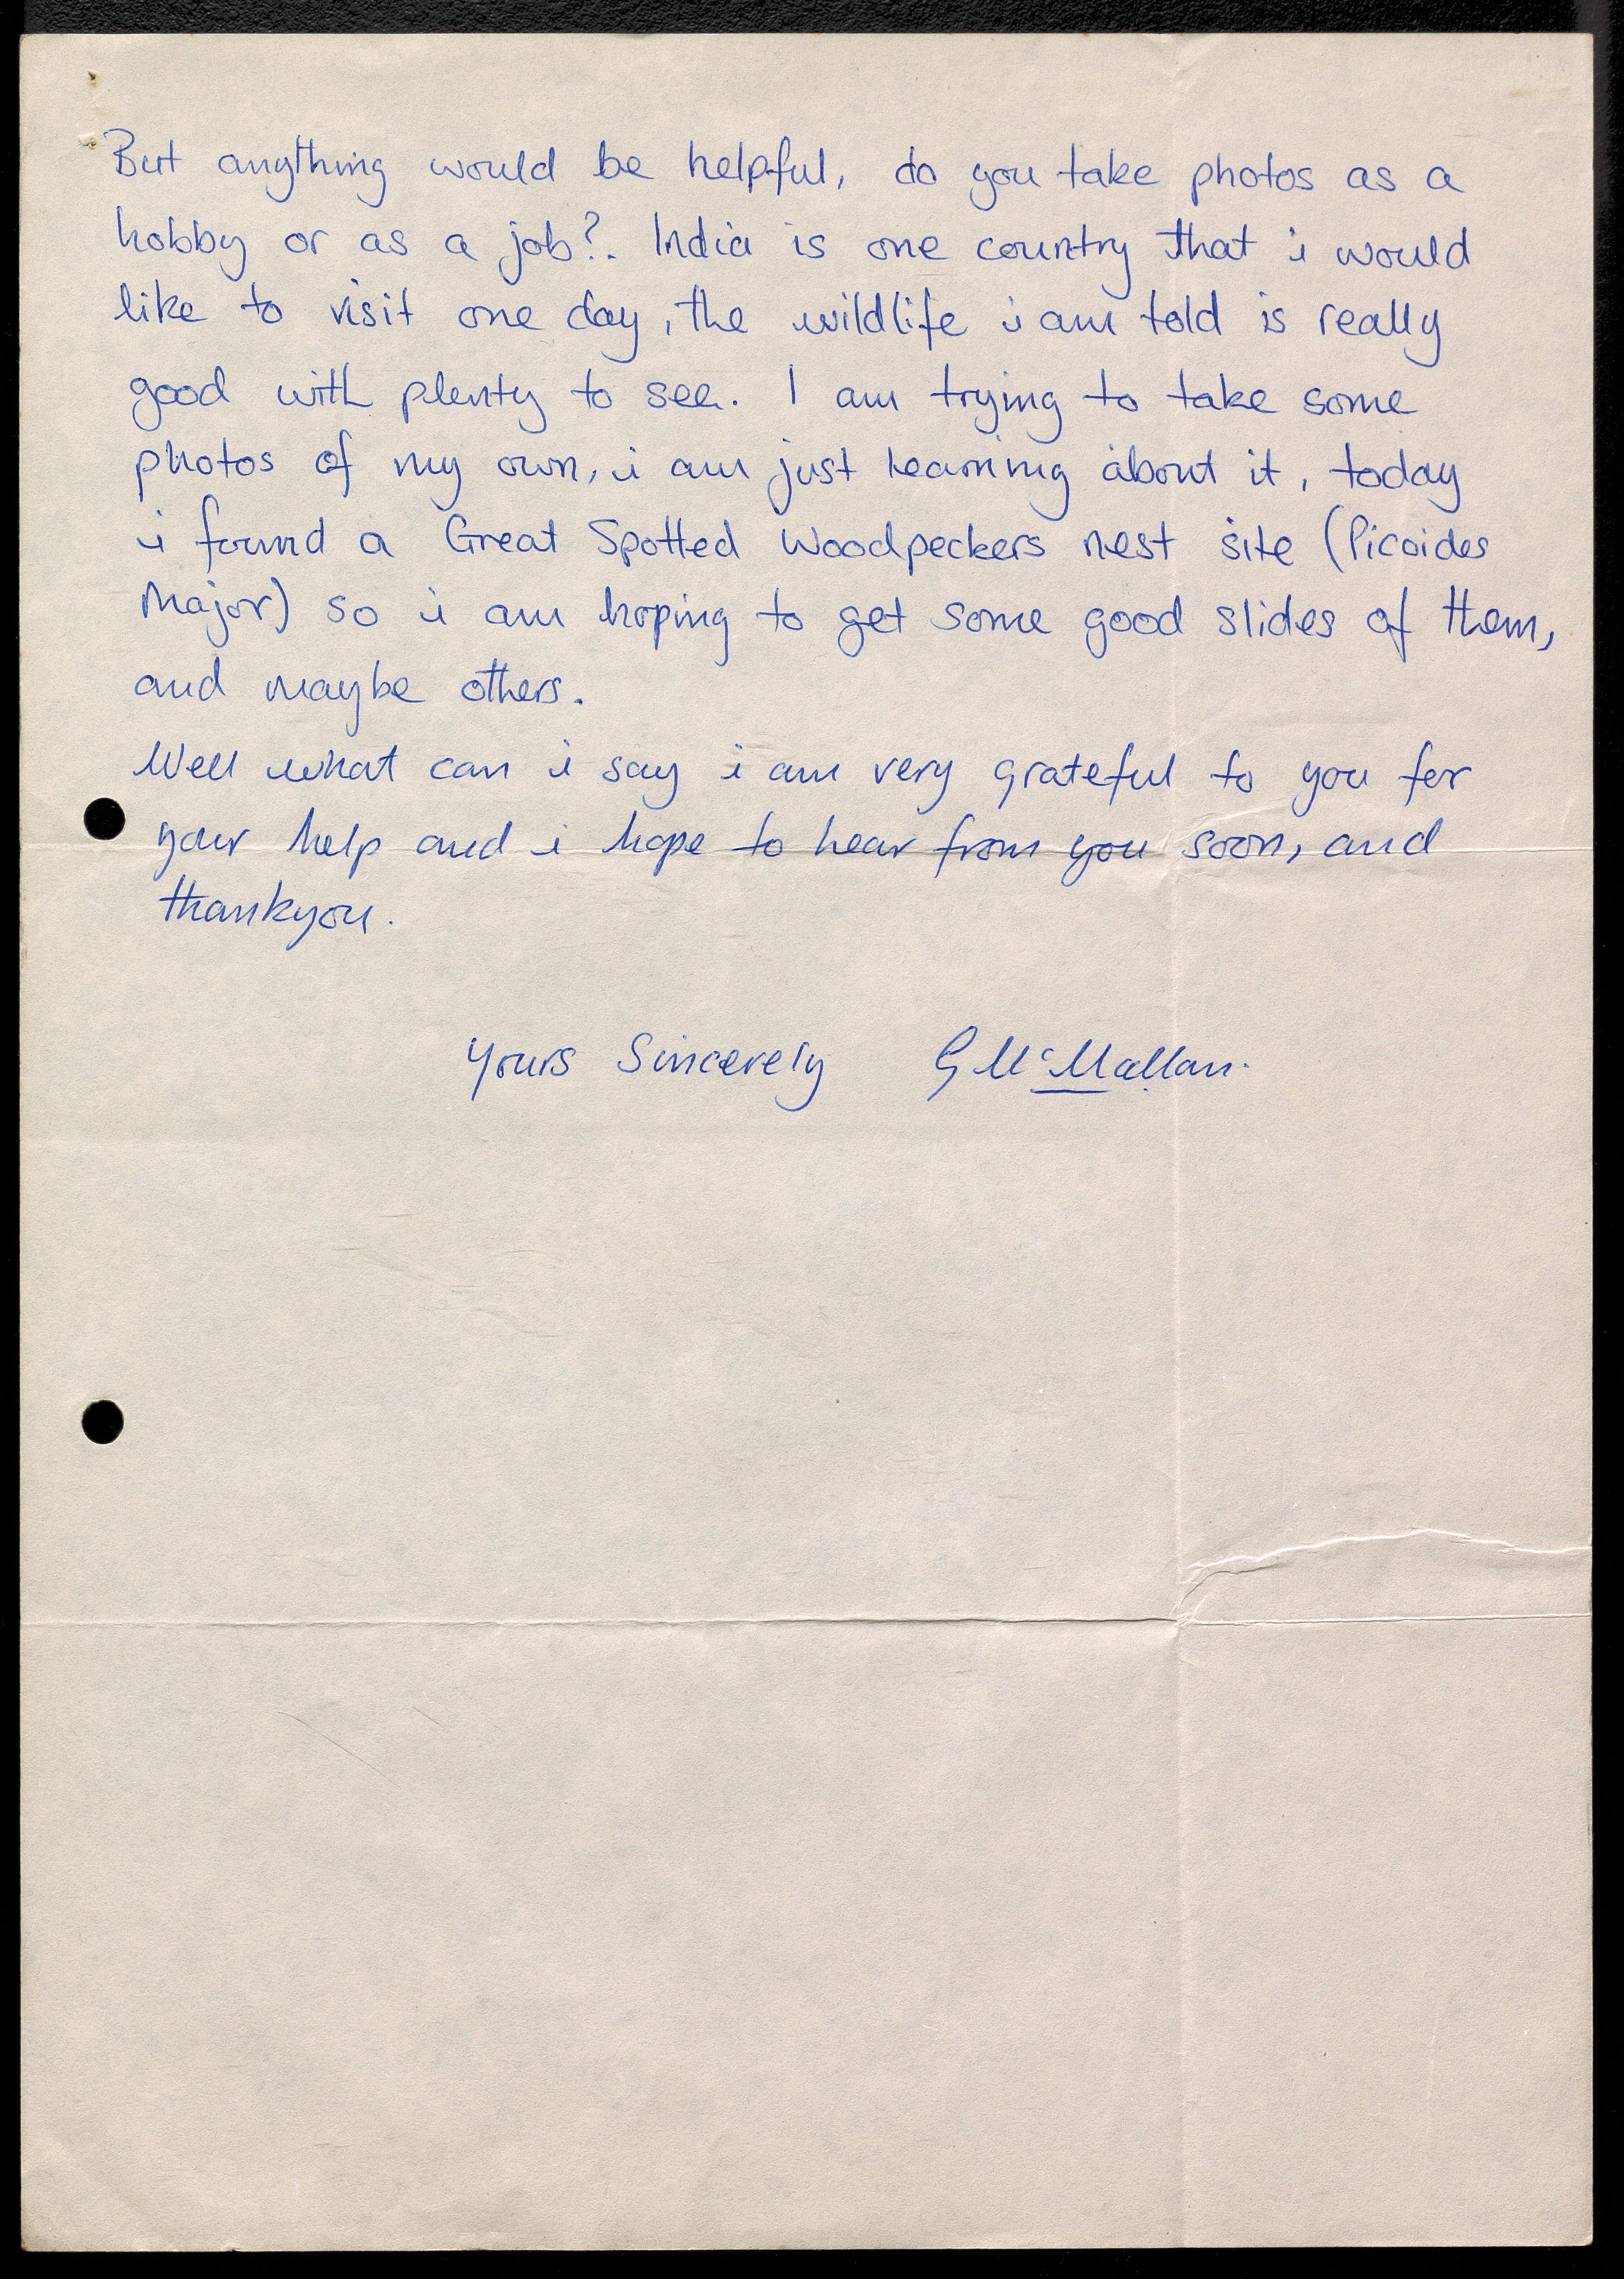 But anything would be helpful, do you take photos as a
hobby or as a job?. India is one country that i would
like to visit one day, the wildlife i am told is really
good with plenty to see. I am trying to take some
photos of my own, i am just learning about it, today
i found a Great Spotted Woodpeckers nest site (Picoides
Major) so i am hoping to get some good slides of them,
and maybe others.
Well what can i say i am very grateful to you for
your help and i hope to hear from you soon, and
thankyou.
Yours Sincerely G McMallan.